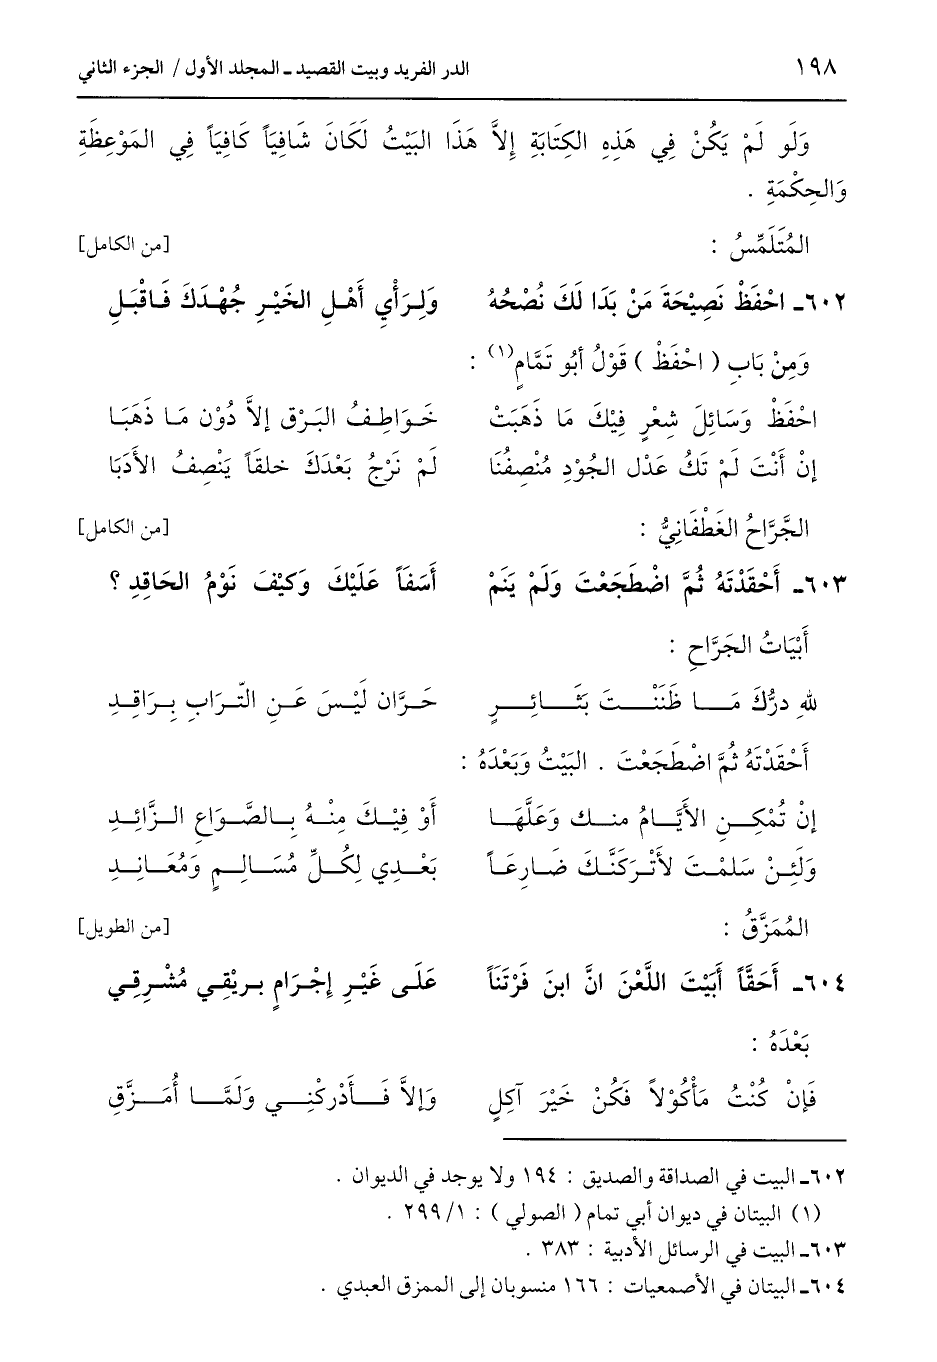 ١٩٨ الدر الفريد وبيت القصيد ـ المجلد الأول / الجزء الثاني
وَلَو لَمْ يَكُنْ فِي هَذِهِ الكِتَابَةِ إِلاَّ هَذَا البَيْتُ لَكَانَ شَافِيَاً كَافِيَاً فِي المَوْعِظَةِ
وَالحِكْمَةِ .
المُتَلَمِّسُ : [من الكامل]
٦٠٢ـ احْفَظْ نَصِيْحَةَ مَنْ بَدَا لَكَ نُصْحُهُ وَلِرَأْيِ أَهْلِ الخَيْرِ جُهْدَكَ فَاقْبَلِ
وَمِنْ بَابِ ( احْفَظْ ) قَوْلُ أَبُو تَمَّامٍ(١) :
احْفَظْ وَسَائِلَ شِعْرٍ فِيْكَ مَا ذَهَبَتْ خَوَاطِفُ البَرْقِ إِلاَّ دُوْن مَا ذَهَبَا
إِنْ أَنْتَ لَمْ تَكُ عَدْل الجُوْدِ مُنْصِفُنَا لَمْ نَرْجُ بَعْدَكَ خلقَاً يَنْصِفُ الأَدَبَا
الجَّرَّاحُ الغَطْفَانِيُّ : [من الكامل]
٦٠٣ـ أَحْقَدْتَهُ ثُمَّ اضْطَجَعْتَ وَلَمْ يَنَمْ أَسَفَاً عَلَيْكَ وَكَيْفَ نَوْمُ الحَاقِدِ ؟
أَبْيَاتُ الجَرَّاحِ :
للهِ درُّكَ مَا ظَنَنْتَ بَثَائِرٍ حَرَّان لَيْسَ عَنِ التِّرَابِ بِرَاقِدِ
أَحْقَدْتَهُ ثُمَّ اضْطَجَعْتَ . البَيْتُ وَبَعْدَهُ :
إِنْ تُمْكِنِ الأَيَّامُ منك وَعَلَّهَا أَوْ فِيْكَ مِنْهُ بِالصَّوَاعِ الزَّائِدِ
وَلَئِنْ سَلمْتَ لأَتْرَكَنَّكَ ضَارِعَاً بَعْدِي لِكُلِّ مُسَالِمٍ وَمُعَانِدِ
المُمَزَّقُ : [من الطويل]
٦٠٤ـ أَحَقَّاً أَبَيْتَ اللَّعْنَ انَّ ابنَ فَرْتَنَاً عَلَى غَيْرِ إِجْرَامٍ بِرِيْقِي مُشْرِقِي
بَعْدَهُ :
فَإِنْ كُنْتُ مَأْكُوْلاً فَكُنْ خَيْرَ آكِلٍ وَإِلاَّ فَأَدْرِكْنِي وَلَمَّا أُمَزَّقِ
٦٠٢ـ البيت في الصداقة والصديق : ١٩٤ ولا يوجد في الديوان .
(١) البيتان في ديوان أبي تمام ( الصولي ) : ١/ ٢٩٩ .
٦٠٣ـ البيت في الرسائل الأدبية : ٣٨٣ .
٦٠٤ـ البيتان في الأصمعيات : ١٦٦ منسوبان إلى الممزق العبدي .